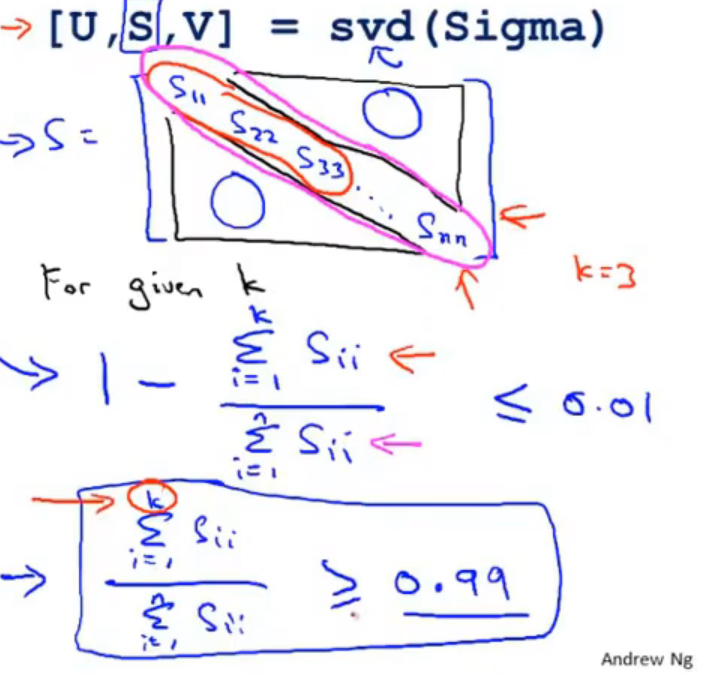 → [U,S,V] = svd(Sigma)
→ S = [ S11 S22 S33 ... Snn ]
k=3
For given k
→ 1 - k Σ i=1 Sii / n Σ i=1 Sii ≤ 0.01
→ k Σ i=1 Sii / n Σ i=1 Sii ≥ 0.99
Andrew Ng